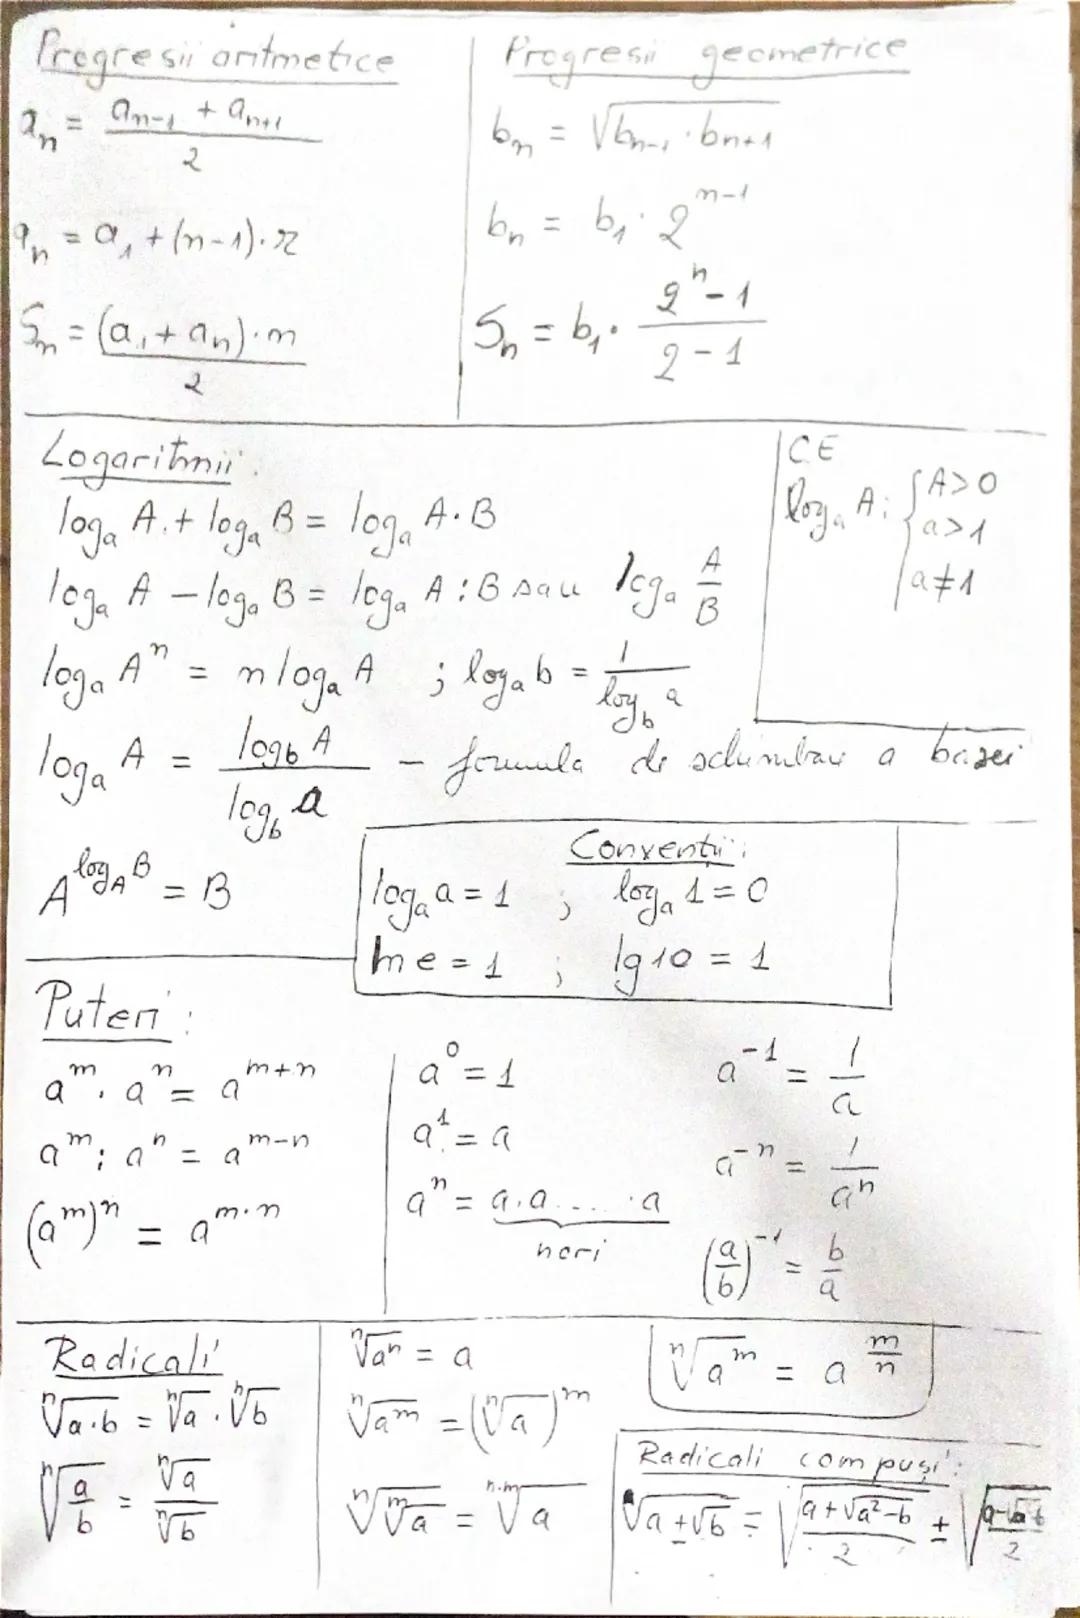 Progresii aritmetice
aₙ = (aₙ₋₁ + aₙ₊₁)/2
aₙ = a₁ + (n-1)·r
Sₙ = (a₁ + aₙ)·n/2
Progresii geometrice
bₙ = √(bₙ₋₁ · bₙ₊₁)
bₙ = b₁ · qⁿ⁻¹
Sₙ = b₁ · (qⁿ - 1)/(q - 1)
Logaritmii:
logₐ A + logₐ B = logₐ A·B
logₐ A – logₐ B = logₐ A : B sau logₐ A/B
logₐ Aⁿ = n logₐ A ; logₐ b = 1/log_b a
logₐ A = log_b A/log_b a – formula de schimbare a bazei
A^(log_A B) = B
C.E
logₐ A: { A>0
a>1
a≠1
Convenții:
logₐ a = 1 ; logₐ 1 = 0
ln e = 1 ; lg 10 = 1
Puteri:
aᵐ · aⁿ = aᵐ⁺ⁿ
aᵐ : aⁿ = aᵐ⁻ⁿ
(aᵐ)ⁿ = aᵐ·ⁿ
a⁰ = 1
a¹ = a
aⁿ = a·a.... ·a
n ori
a⁻¹ = 1/a
a⁻ⁿ = 1/aⁿ
(a/b)⁻¹ = b/a
Radicali
ⁿ√(a·b) = ⁿ√a · ⁿ√b
ⁿ√(a/b) = ⁿ√a/ⁿ√b
ⁿ√aⁿ = a
ⁿ√aᵐ = (ⁿ√a)ᵐ
ⁿ√(ᵐ√a) = ⁿ·ᵐ√a
ⁿ√aᵐ = a^(m/n)
Radicali compuși:
√(a ± √b) = √((a + √(a²-b))/2) ±